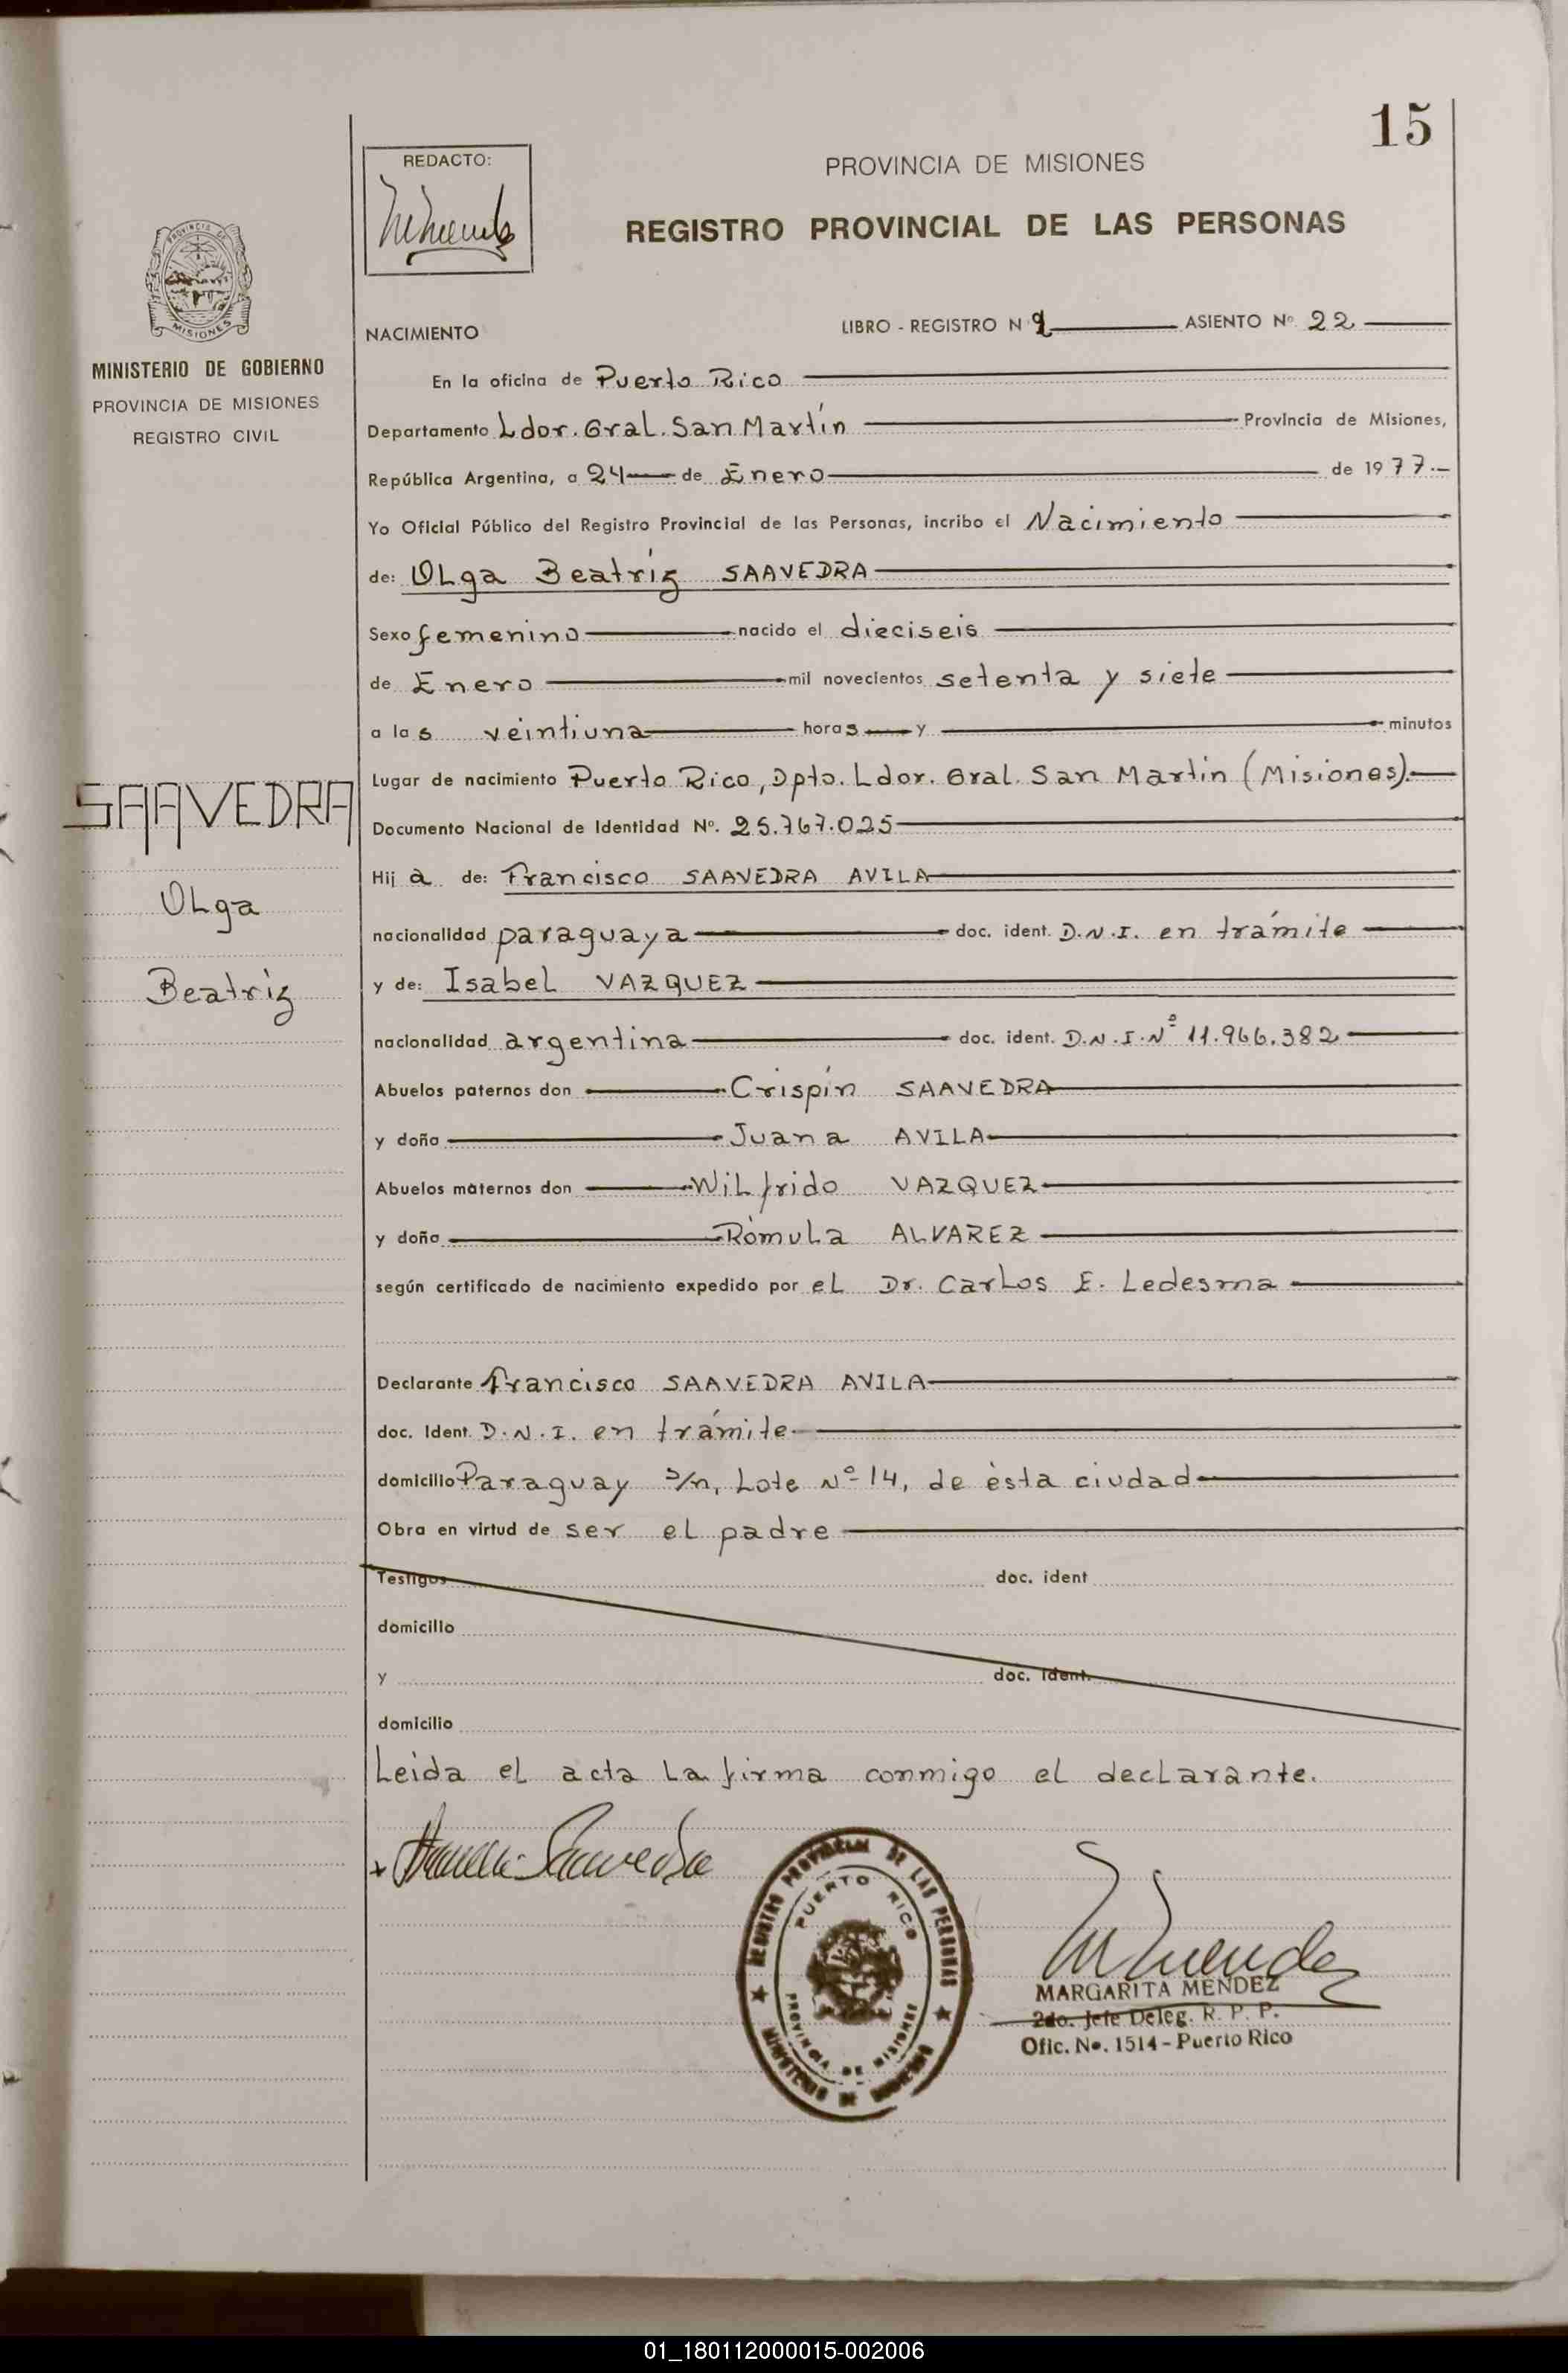 15
REDACTO:
PROVINCIA DE MISIONES
REGISTRO PROVINCIAL DE LAS PERSONAS
PROVINCIA DE
MISIONES
MINISTERIO DE GOBIERNO
PROVINCIA DE MISIONES
REGISTRO CIVIL
NACIMIENTO
LIBRO - REGISTRO N ASIENTO Nº 22
En la oficina de Puerto Rico
Departamento Ldor. Gral. San Martín Provincia de Misiones,
República Argentina, a 24 de Enero de 1977.-
Yo Oficial Público del Registro Provincial de las Personas, incribo el Nacimiento
de: Olga Beatríz SAAVEDRA
Sexo femenino nacido el dieciseis
de Enero mil novecientos setenta y siete
a las veintiuna horas y minutos
Lugar de nacimiento Puerto Rico, Dpto. Ldor. Gral. San Martín (Misiones).
Documento Nacional de Identidad Nº. 25.767.025
Hij a de: Francisco SAAVEDRA AVILA
nacionalidad paraguaya doc. ident. D.N.I. en trámite
y de: Isabel VAZQUEZ
nacionalidad argentina doc. ident. D.N.I. Nº 11.966.382
Abuelos paternos don Crispín SAAVEDRA
y doña Juana AVILA
Abuelos maternos don Wilfrido VAZQUEZ
y doña Rómula ALVAREZ
según certificado de nacimiento expedido por el Dr. Carlos E. Ledesma
Declarante Francisco SAAVEDRA AVILA
doc. Ident. D.N.I. en trámite
domicilio Paraguay s/n, Lote Nº 14, de ésta ciudad
Obra en virtud de ser el padre
Testigos doc. ident
domicilio
y doc. ident.
domicilio
Leída el acta la firma conmigo el declarante.
SAAVEDRA
Olga
Beatríz
Saavedra
REGISTRO PROVINCIAL DE LAS PERSONAS
PUERTO RICO
PROVINCIA DE MISIONES
MINISTERIO DE GOBIERNO
MARGARITA MENDEZ
2do. Jefe Deleg. R. P. P.
Ofic. No. 1514 - Puerto Rico
01_180112000015-002006